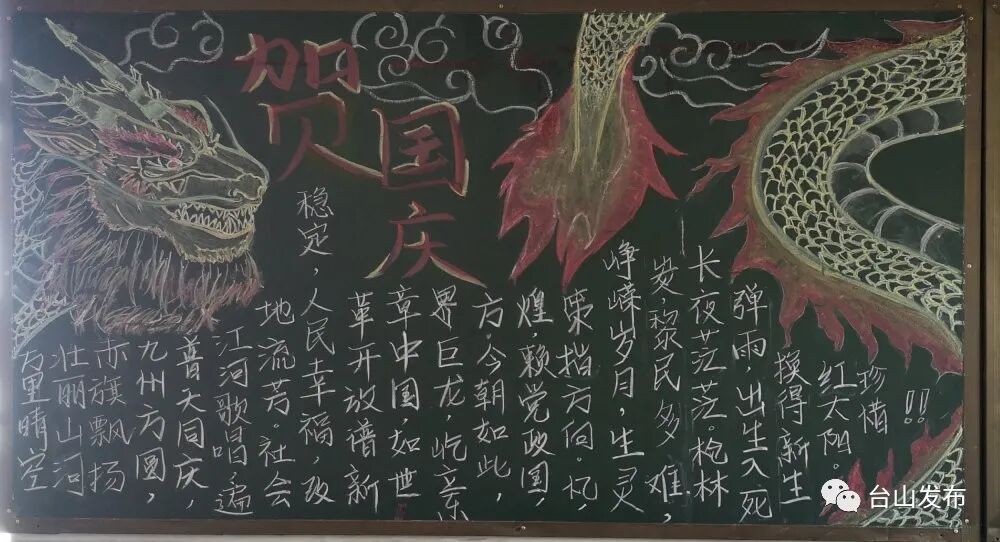 贺国庆
万里晴空
壮丽山河
赤旗飘扬
九州方圆，
普天同庆，
江河歌唱遍
地流芳。社会
稳定，人民幸福，改
革开放谱新
章中国，如世
界巨龙，屹立东
方。今朝如此，
煌赖党政国，
策指方向。忆，
峥嵘岁月，生灵
炭，黎民多难，
长夜茫茫。枪林
弹雨，出生入死
换得新生
红太阳。
珍惜
!!
台山发布